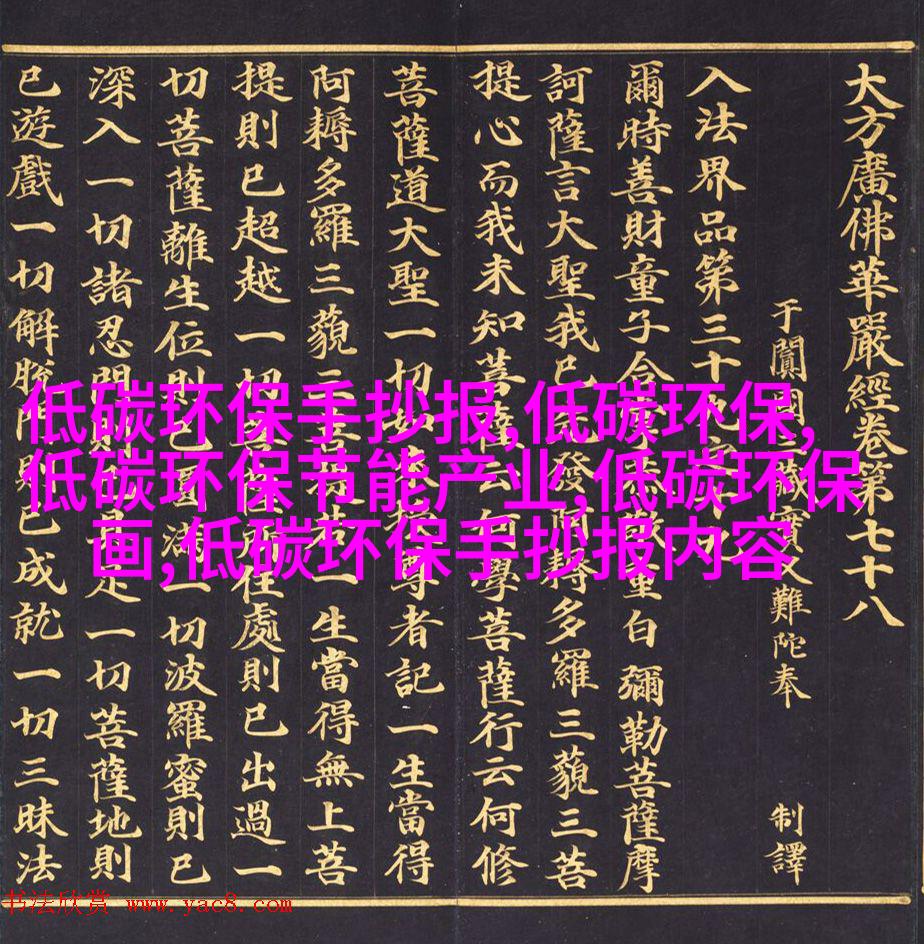 大方廣佛華嚴經卷第七十八
于闐國三藏實叉難陀奉 制譯
入法界品第三十九之
爾時善財童子合恭敬重白彌勒菩薩摩
訶薩言大聖我已先發阿耨多羅三藐三菩
提心而我未知菩薩云何學菩薩行云何修
菩薩道大聖一切如來授尊者記一生當得
阿耨多羅三藐三菩提若一生當得無上菩
提則已超越一切菩薩所住處則已出過一
切菩薩離生位則已圓滿一切波羅蜜則已
深入一切諸忍門則已具足一切菩薩地則
已遊戲一切解脫門則已成就一切三昧法
低碳环保手抄报,低碳环保,
低碳环保节能产业,低碳环保
画,低碳环保手抄报内容
书法欣赏 www.yac8.com